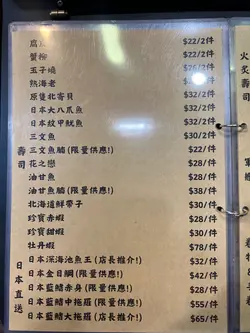 $22/2件
蟹柳 $22/2件
玉子燒
熟海老 $22/2件
原隻北寄貝 $32/2件
日本大八爪魚 $32/2件
日本紋甲魷魚 $32/2件
三文魚 $30/2件
三文魚腩 (限量供應!) $22/件
花之戀 $28/件
油甘魚 $28/件
油甘魚腩 (限量供應!) $38/件
北海道鮮帶子 $30/件
珍寶赤蝦 $28/件
珍寶甜蝦 $30/件
牡丹蝦 $78/件
日本深海池魚王 (店長推介!) $32/件
日本金目鯛 (限量供應!) $42/件
日本藍鰭赤身 (限量供應!) $28/件
日本藍鰭中拖羅 (限量供應!) $55/件
日本藍鰭大拖羅 (店長推介!) $65/件
壽司
日本直送
火
炙